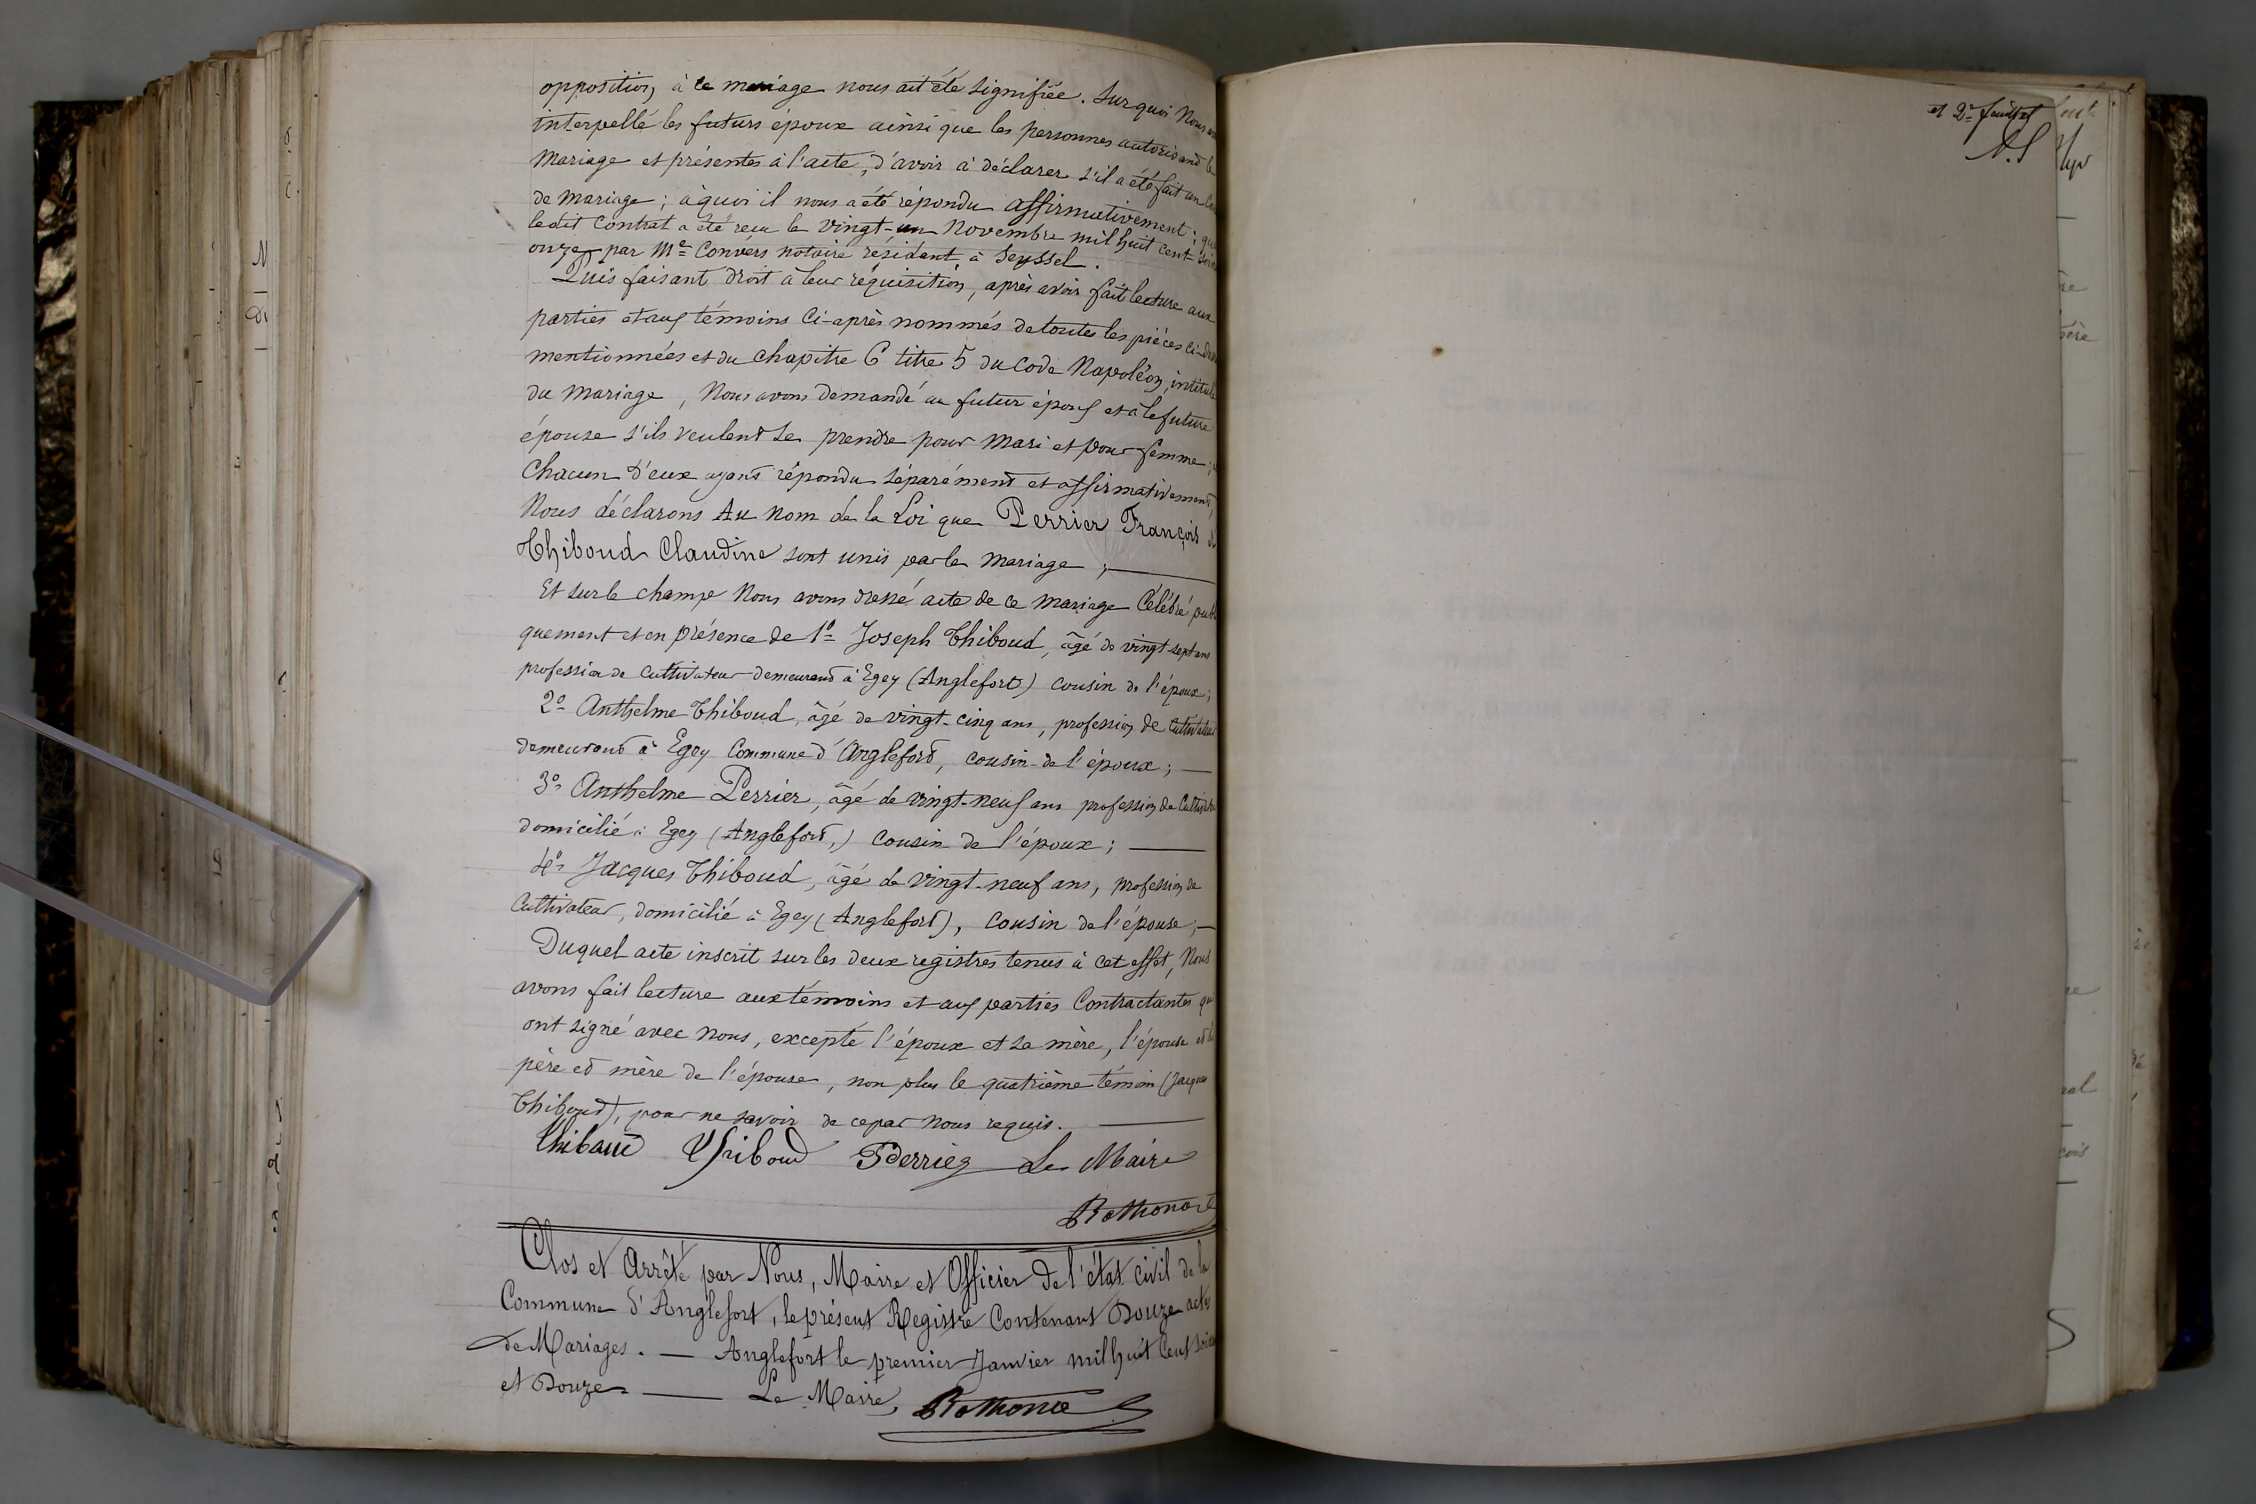 opposition à ce mariage nous ait été signifiée. Sur quoi Nous
interpellé les futurs époux ainsi que les personnes autorisant le
Mariage et présentes à l'acte, d'avoir à déclarer s'il a été fait un
de Mariage ; à quoi il nous a été répondu affirmativement ; que
ledit Contrat a été reçu le vingt-un Novembre mil huit cent
onze par Me Convers notaire résidant à Seyssel.
Puis faisant droit à leur réquisition, après avoir fait lecture aux
parties et aux témoins Ci-après nommés de toutes les pièces ci-
mentionnées et du chapitre 6 titre 5 du Code Napoléon, intitulé
du Mariage, Nous avons demandé au futur époux et à la future
épouse s'ils veulent se prendre pour Mari et pour femme ;
Chacun d'eux ayant répondu séparément et affirmativement,
Nous déclarons Au Nom de la Loi que Perrier François
Thiboud Claudine sont unis par le Mariage ;
Et sur le champ Nous avons dressé acte de ce Mariage Célébré
quement et en présence de 1º Joseph Thiboud, âgé de vingt-sept ans
profession de Cultivateur demeurant à Egey (Anglefort) cousin de l'époux ;
2º Anthelme Thiboud, âgé de vingt-cinq ans, profession de Cultivateur
demeurant à Egey Commune d'Anglefort, cousin de l'époux ;
3º Anthelme Perrier, âgé de vingt-neuf ans profession de
domicilié à Egey (Anglefort,) Cousin de l'époux ;
4º Jacques Thiboud, âgé de vingt-neuf ans, profession de
Cultivateur, domicilié à Egey (Anglefort), Cousin de l'épouse ;
Duquel acte inscrit sur les deux registres tenus à cet effet, Nous
avons fait lecture aux témoins et aux parties Contractantes
ont signé avec nous, excepté l'époux et sa mère, l'épouse
père et mère de l'épouse, non plus le quatrième témoin (Jacques
Thiboud), pour ne savoir de ce par Nous requis.
Thiboud Thiboud Perrier Le Maire
Clos et Arrêté par Nous, Maire et Officier de l'état civil de la
Commune d'Anglefort, le présent Registre Contenant Douze actes
de Mariages. — Anglefort le premier Janvier mil huit Cent
et Douze. — Le Maire,
et 2e feuillet